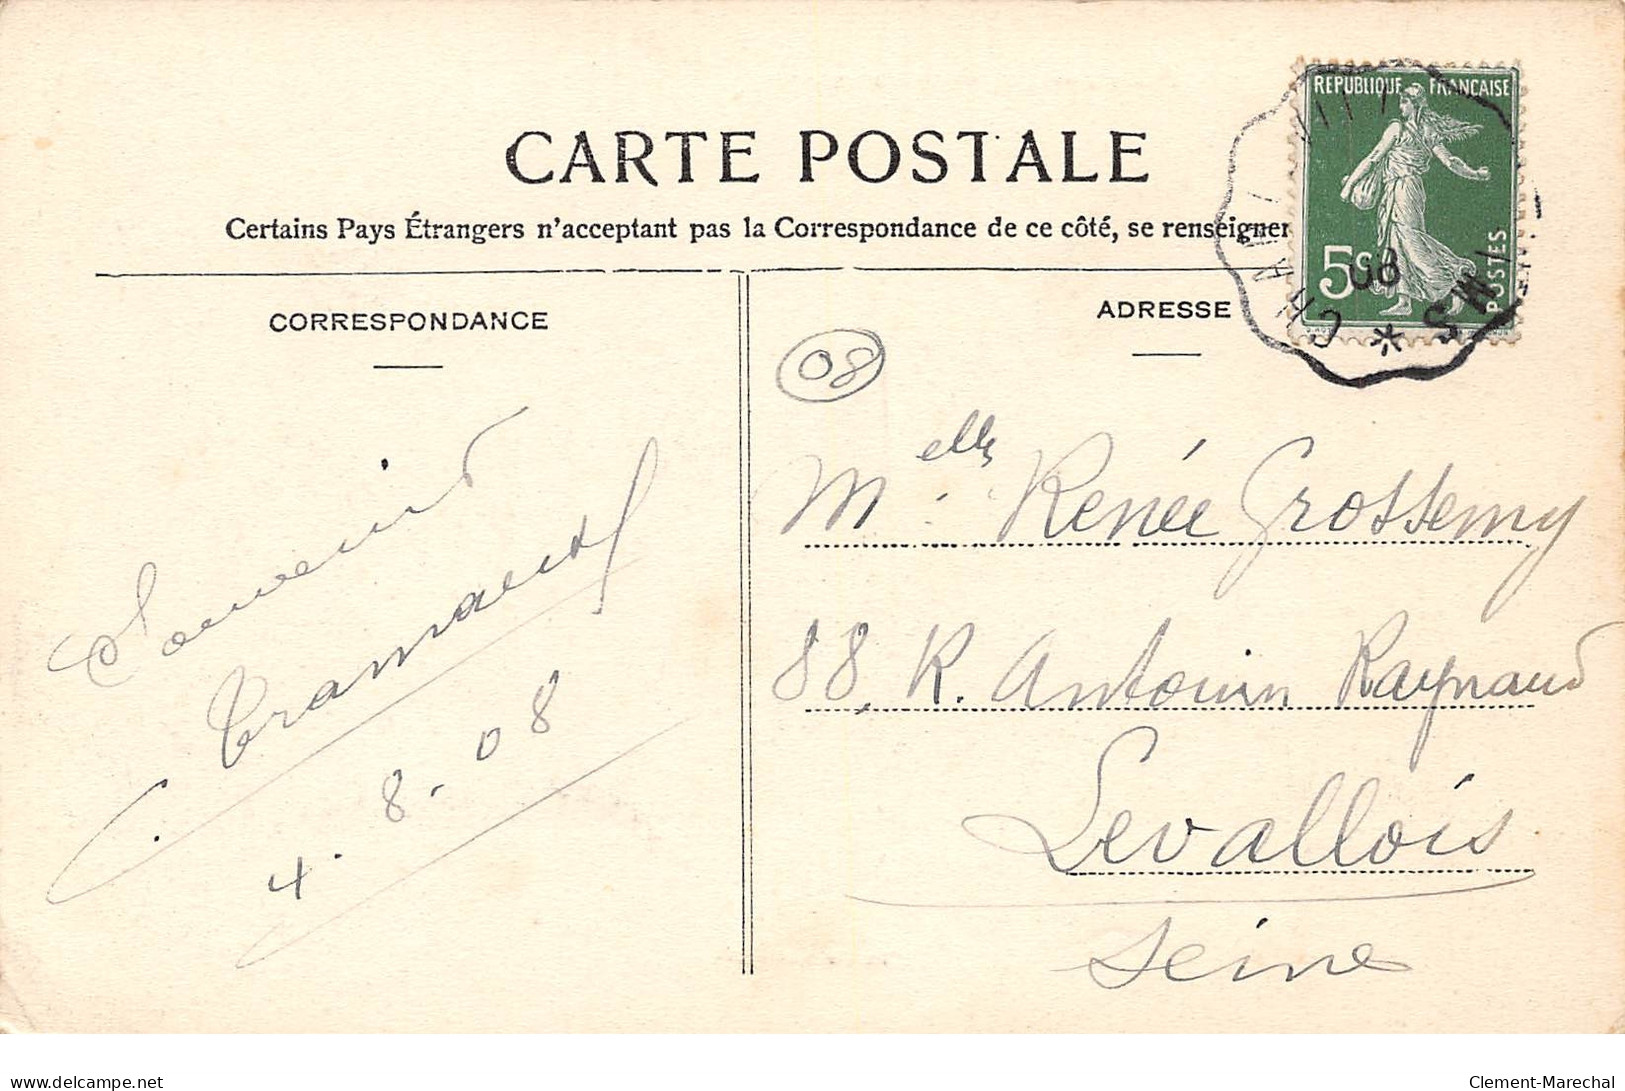 CARTE POSTALE
Certains Pays Étrangers n'acceptant pas la Correspondance de ce côté, se renseigner
CORRESPONDANCE
ADRESSE
REPUBLIQUE FRANCAISE
5c
POSTES
08
08
Souvenir
4.8.08
Melle Renée Grossemy
88, R. Antonin Raynaud
Levallois
Seine
delcampe.net
Clement-Marechal